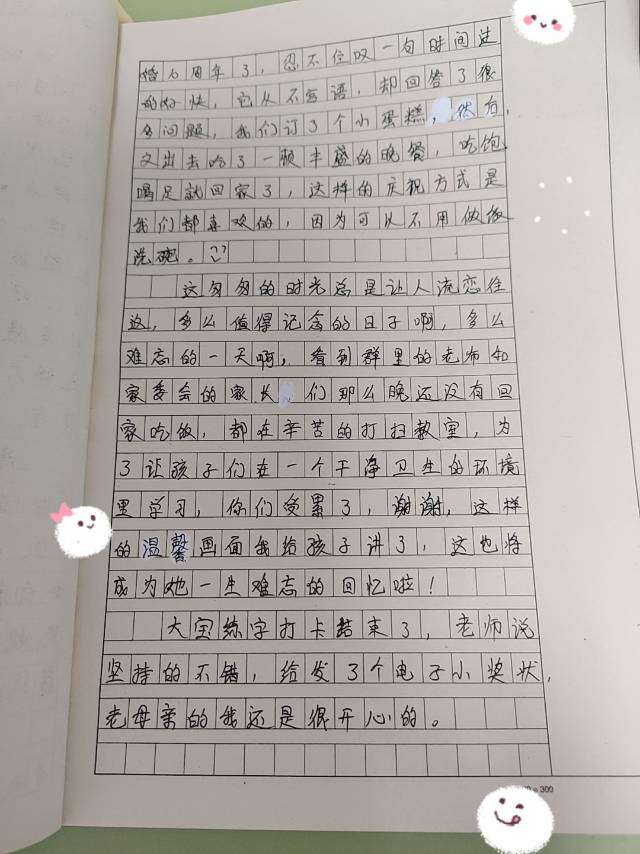 婚八周年了，忍不住叹一句时间过
的好快，它从不言语，却回答了很
多问题，我们订了个小蛋糕，然后，
又出去吃了一顿丰盛的晚餐，吃饱
喝足就回家了，这样的庆祝方式是
我们都喜欢的，因为可以不用做饭
洗碗。
这匆匆的时光总是让人流恋住
返，多么值得记念的日子啊，多么
难忘的一天啊，看到群里的老师和
家委会的家长们那么晚还没有回
家吃饭，都在辛苦的打扫教室，为
了让孩子们在一个干净卫生的环境
里学习，你们受累了，谢谢，这样
的温馨画面我给孩子讲了，这也将
成为她一生难忘的回忆啦！
大宝练字打卡结束了，老师说
坚持的不错，给发了个电子小奖状，
老母亲的我还是很开心的。
= 300